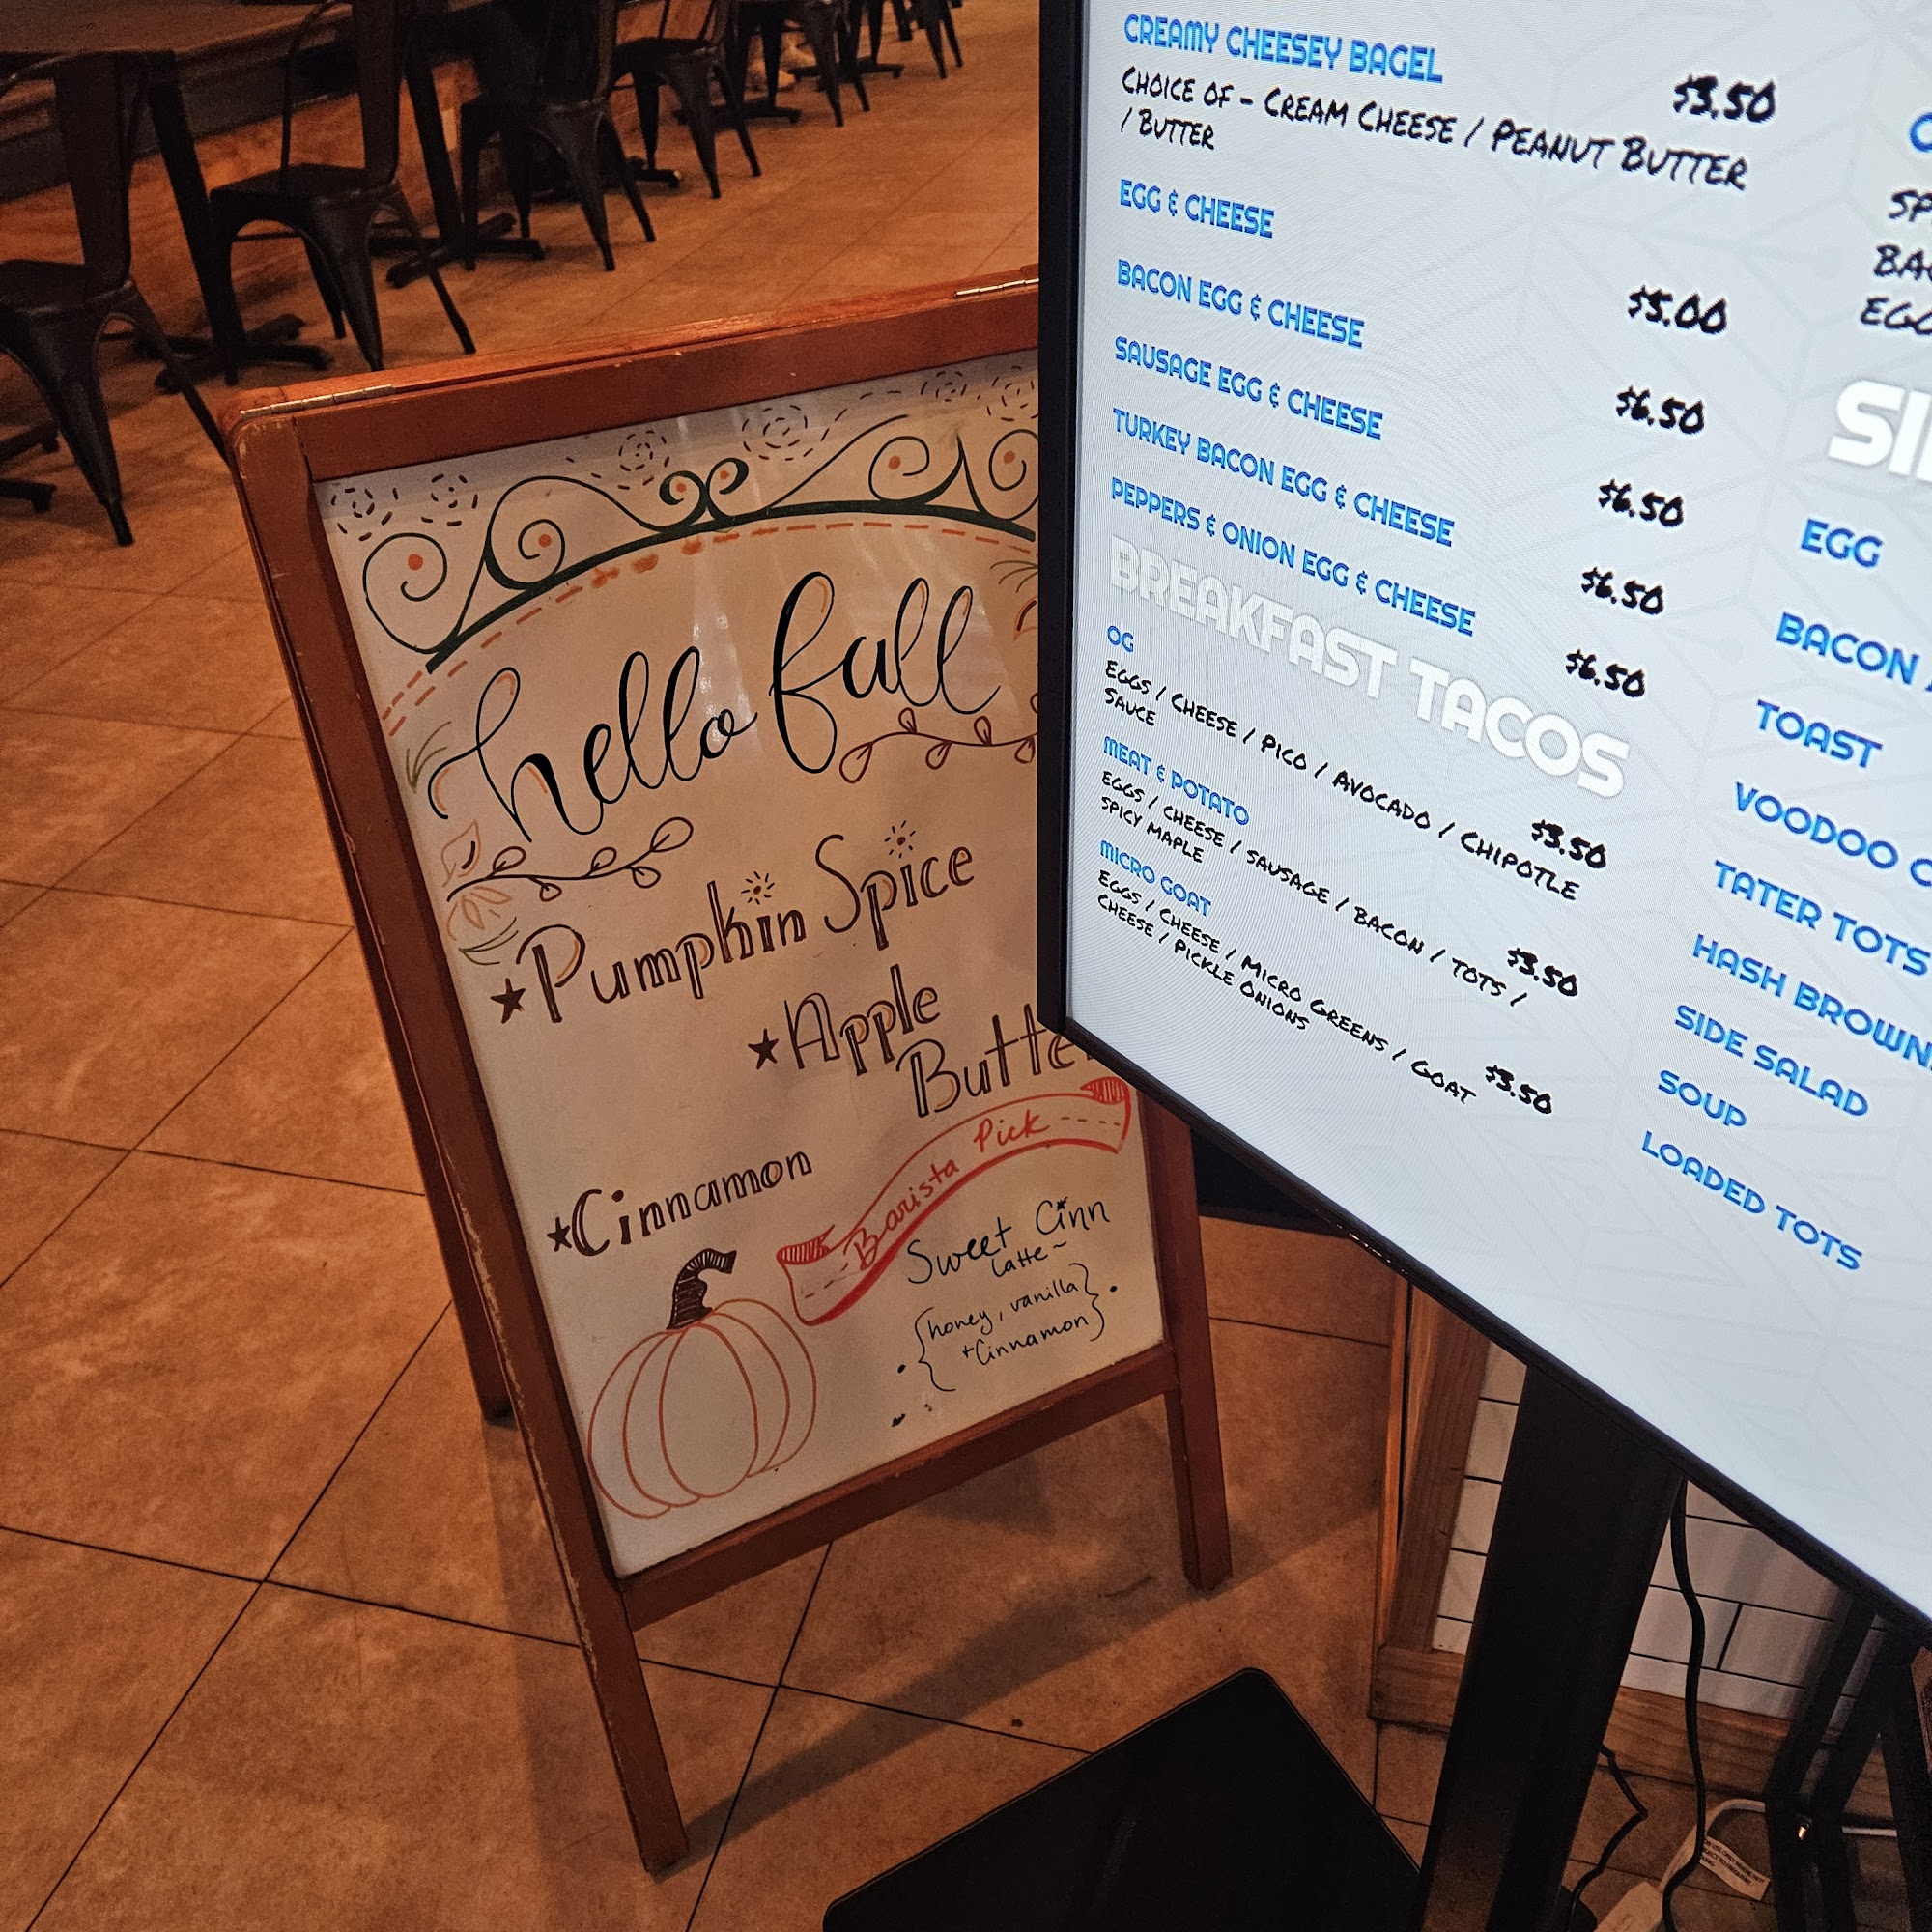 hello fall
★Pumpkin Spice
★Apple
Butte
★Cinnamon
Barista Pick
Sweet Cinn
Latte~
{honey, vanilla
+Cinnamon}
CREAMY CHEESEY BAGEL
$3.50
CHOICE OF - CREAM CHEESE / PEANUT BUTTER
/ BUTTER
EGG & CHEESE
$5.00
BACON EGG & CHEESE
$6.50
SAUSAGE EGG & CHEESE
$6.50
TURKEY BACON EGG & CHEESE
$6.50
PEPPERS & ONION EGG & CHEESE
$6.50
BREAKFAST TACOS
OG
$3.50
EGGS / CHEESE / PICO / AVOCADO / CHIPOTLE
SAUCE
MEAT & POTATO
$3.50
EGGS / CHEESE / SAUSAGE / BACON / TOTS /
SPICY MAPLE
MICRO GOAT
$3.50
EGGS / CHEESE / MICRO GREENS / GOAT
CHEESE / PICKLE ONIONS
EGG
BACON
TOAST
VOODOO
TATER TOTS
HASH BROWN
SIDE SALAD
SOUP
LOADED TOTS